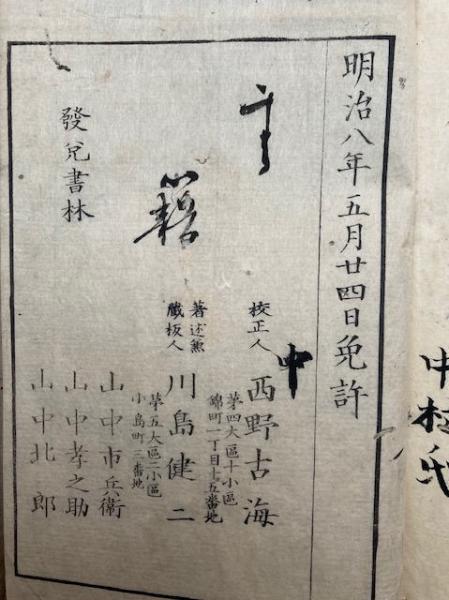 明治八年五月廿四日免許
校正人
西野古海
第四大區十小區
錦町一丁目十五番地
著述兼
藏板人
川島健二
第五大區二小區
小島町三番地
發兌書林
山中市兵衛
山中孝之助
山中北郎
中
中村氏